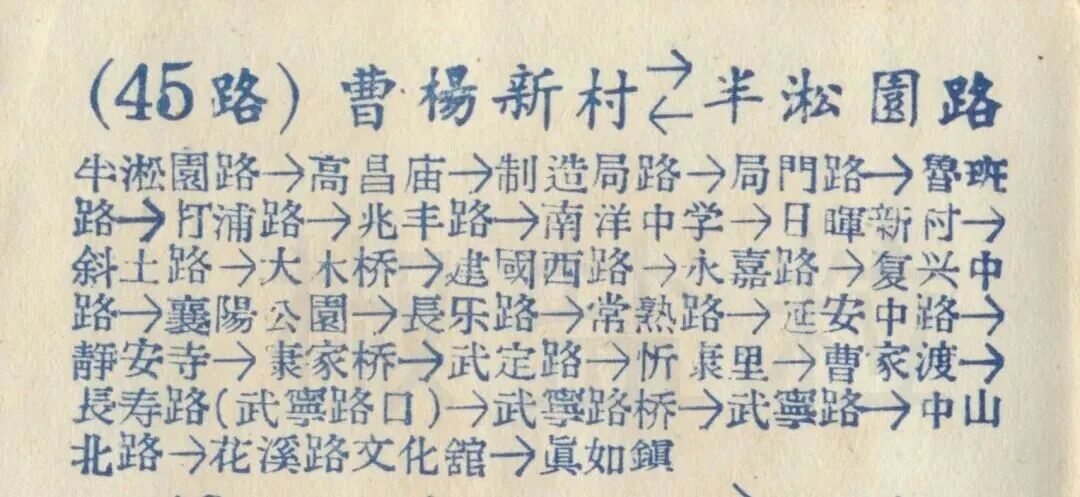 (45路)曹楊新村⇄半淞園路
半淞園路→高昌庙→制造局路→局門路→魯班
路→打浦路→兆丰路→南洋中学→日暉新村→
斜土路→大木桥→建國西路→永嘉路→复兴中
路→襄陽公園→長乐路→常熟路→延安中路→
靜安寺→家桥→武定路→忻康里→曹家渡→
長寿路(武寧路口)→武寧路桥→武寧路→中山
北路→花溪路文化舘→眞如鎭